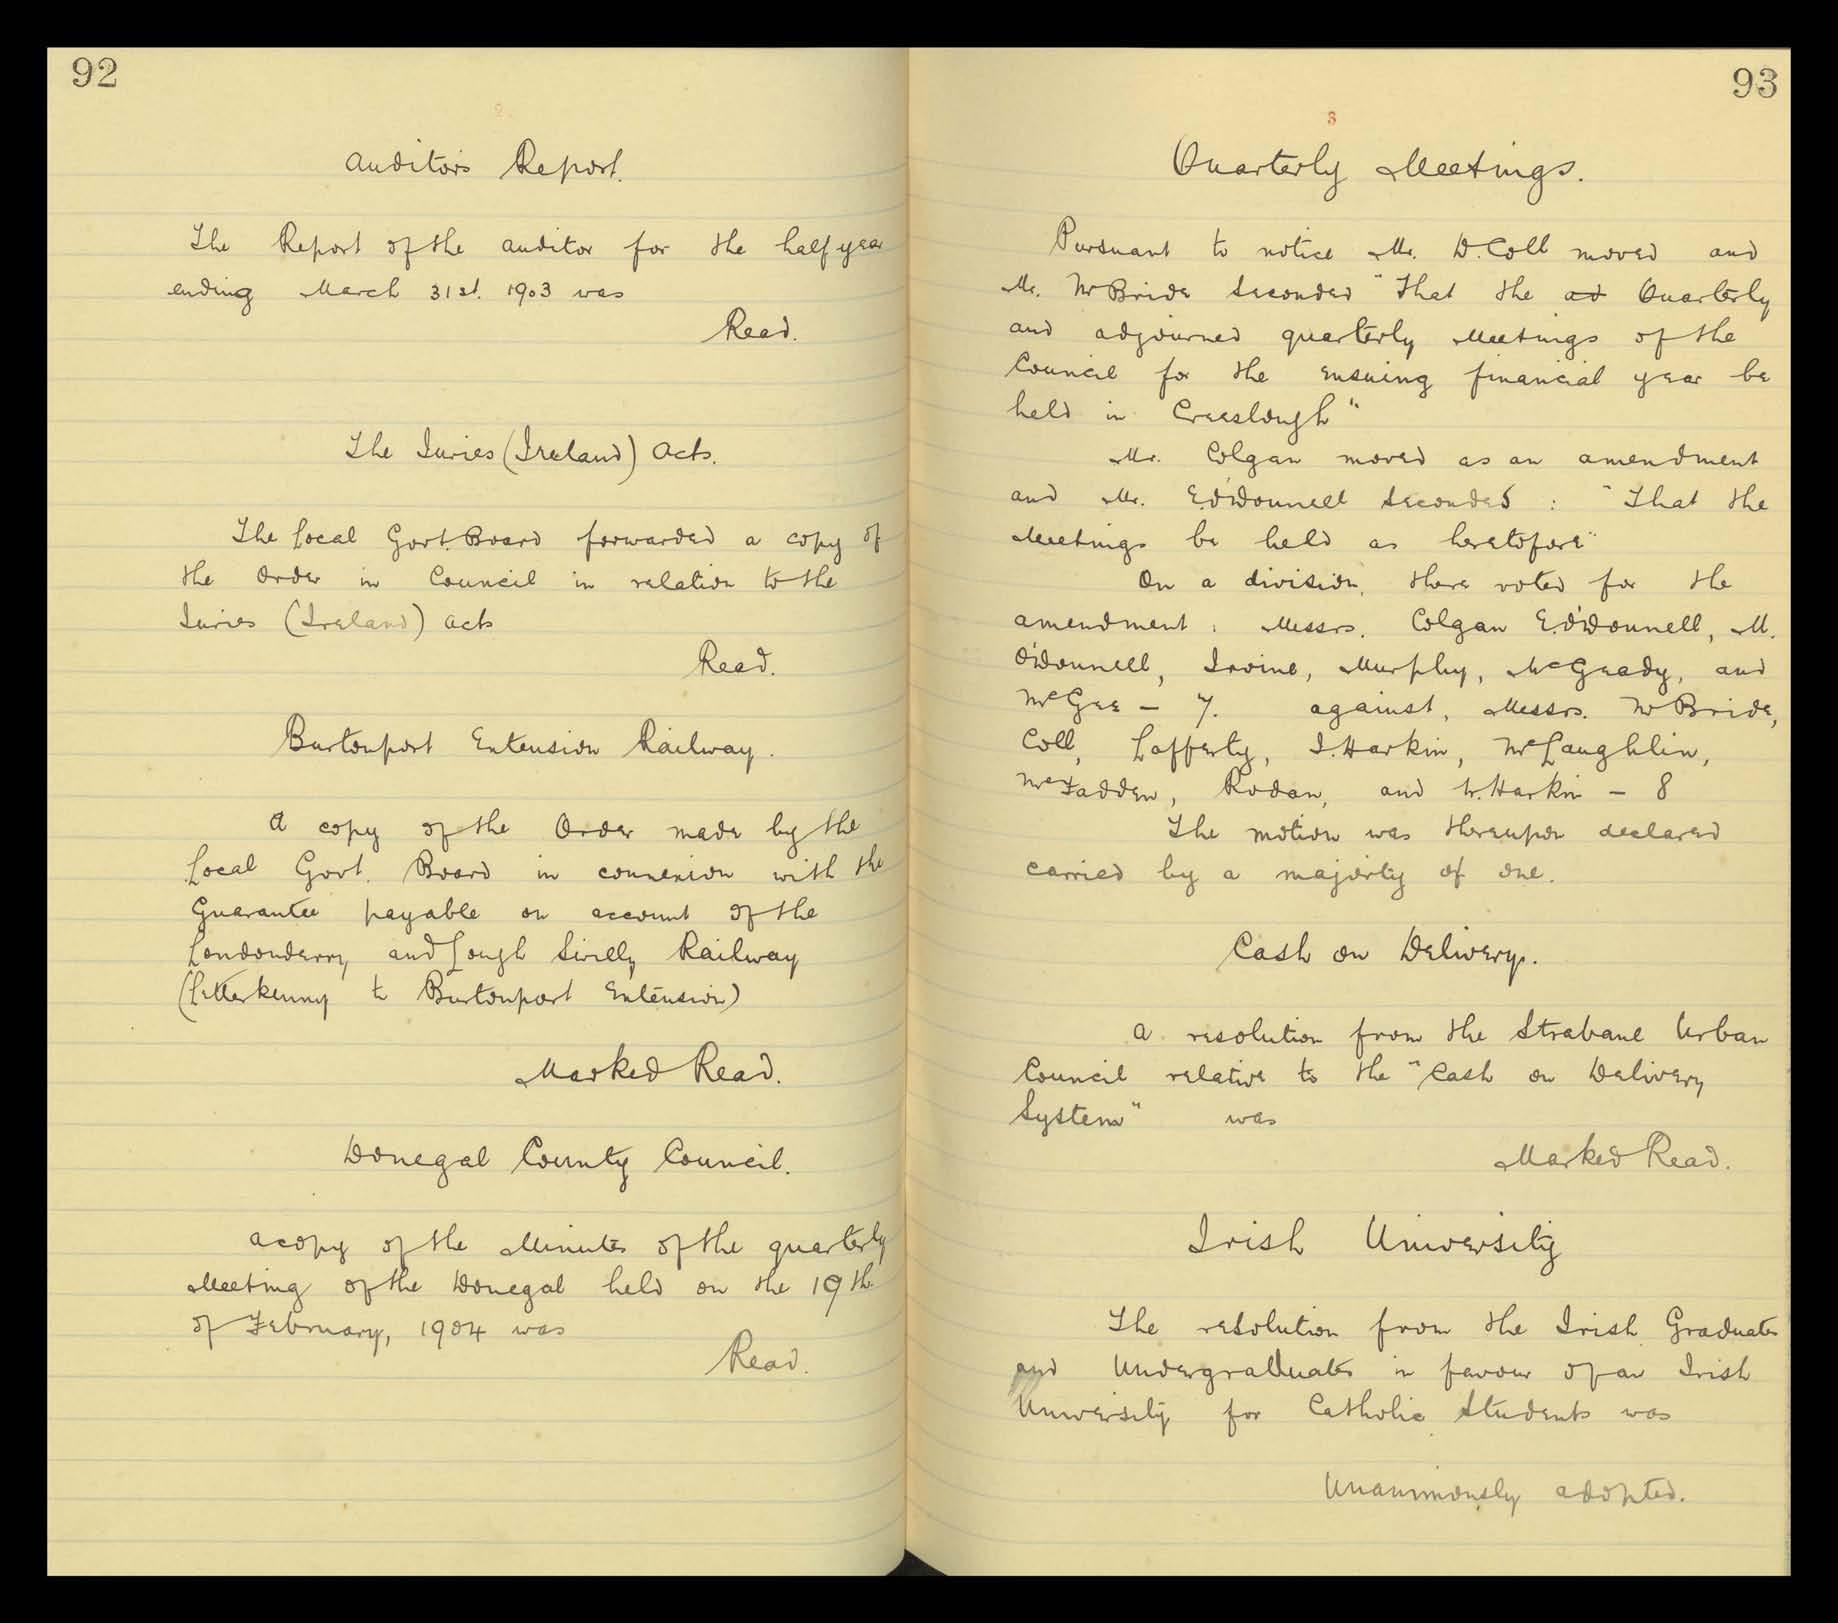 92
2
Auditors Report.
The Report of the auditor for the half year
ending March 31st. 1903 was
Read.
The Juries (Ireland) Acts.
The Local Govt. Board forwarded a copy of
the Order in Council in relation to the
Juries (Ireland) Acts
Read.
Burtonport Extension Railway.
A copy of the Order made by the
Local Govt. Board in connexion with the
Guarantee payable on account of the
Londonderry and Lough Swilly Railway
(Letterkenny to Burtonport Extension)
Marked Read.
Donegal County Council.
A copy of the Minutes of the quarterly
Meeting of the Donegal held on the 19th
of February, 1904 was
Read.
93
3
Quarterly Meetings.
Pursuant to notice Mr. D. Coll moved and
Mr. McBride Seconded "That the ad Quarterly
and adjourned quarterly Meetings of the
Council for the ensuing financial year be
held in Creeslough"
Mr. Colgan moved as an amendment
and Mr. E. O'Donnell Seconded : "That the
Meetings be held as heretofore"
On a division, there voted for the
amendment : Messrs. Colgan E. O'Donnell, M.
O'Donnell, Irvine, Murphy, McGeady, and
McGee - 7. against, Messrs. McBride,
Coll, Lafferty, J. Harkin, McLaughlin,
McFadden, Rodan, and W. Harkin - 8
The motion was thereupon declared
carried by a majority of one.
Cash on Delivery.
A resolution from the Strabane Urban
Council relative to the "Cash on Delivery
System" was
Marked Read.
Irish University
The resolution from the Irish Graduates
and Undergraduates in favour of an Irish
University for Catholic Students was
Unanimously adopted.